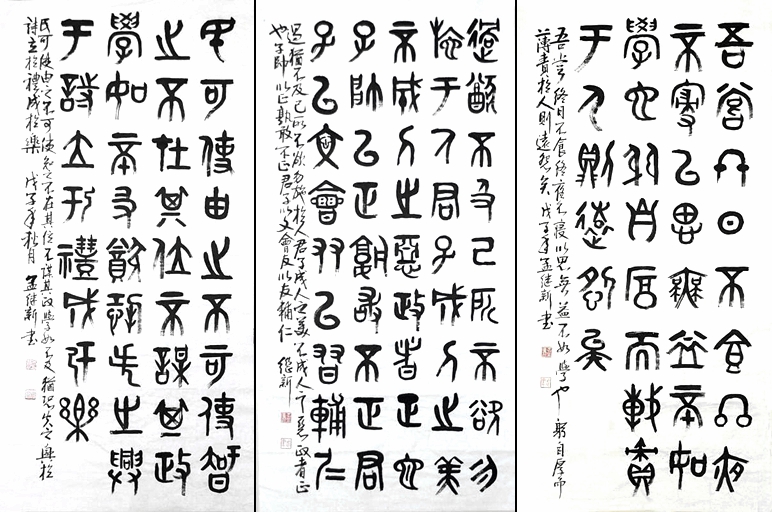 吾嘗終日不食終夜
不寢以思無益不如
學也躬自厚而薄責
于人則遠怨矣
吾嘗終日不食終夜不寢以思無益不如學也躬自厚而
薄責於人則遠怨矣 戊子年孟繼新書
過猶不及己所不欲勿
施于人君子成人之美
不成人之惡政者正也
子帥以正孰敢不正君
子以文會友以友輔仁
過猶不及己所不欲勿施於人君子成人之美不成人之惡政者正
也子帥以正孰敢不正君子以文會友以友輔仁 繼新
民可使由之不可使智
之不在其位不謀其政
學如不及猶恐失之興
于詩立于禮成于樂
民可使由之不可使知之不在其位不謀其政學如不及猶恐失之興於
詩立於禮成於樂 戊子年秋月 孟繼新書